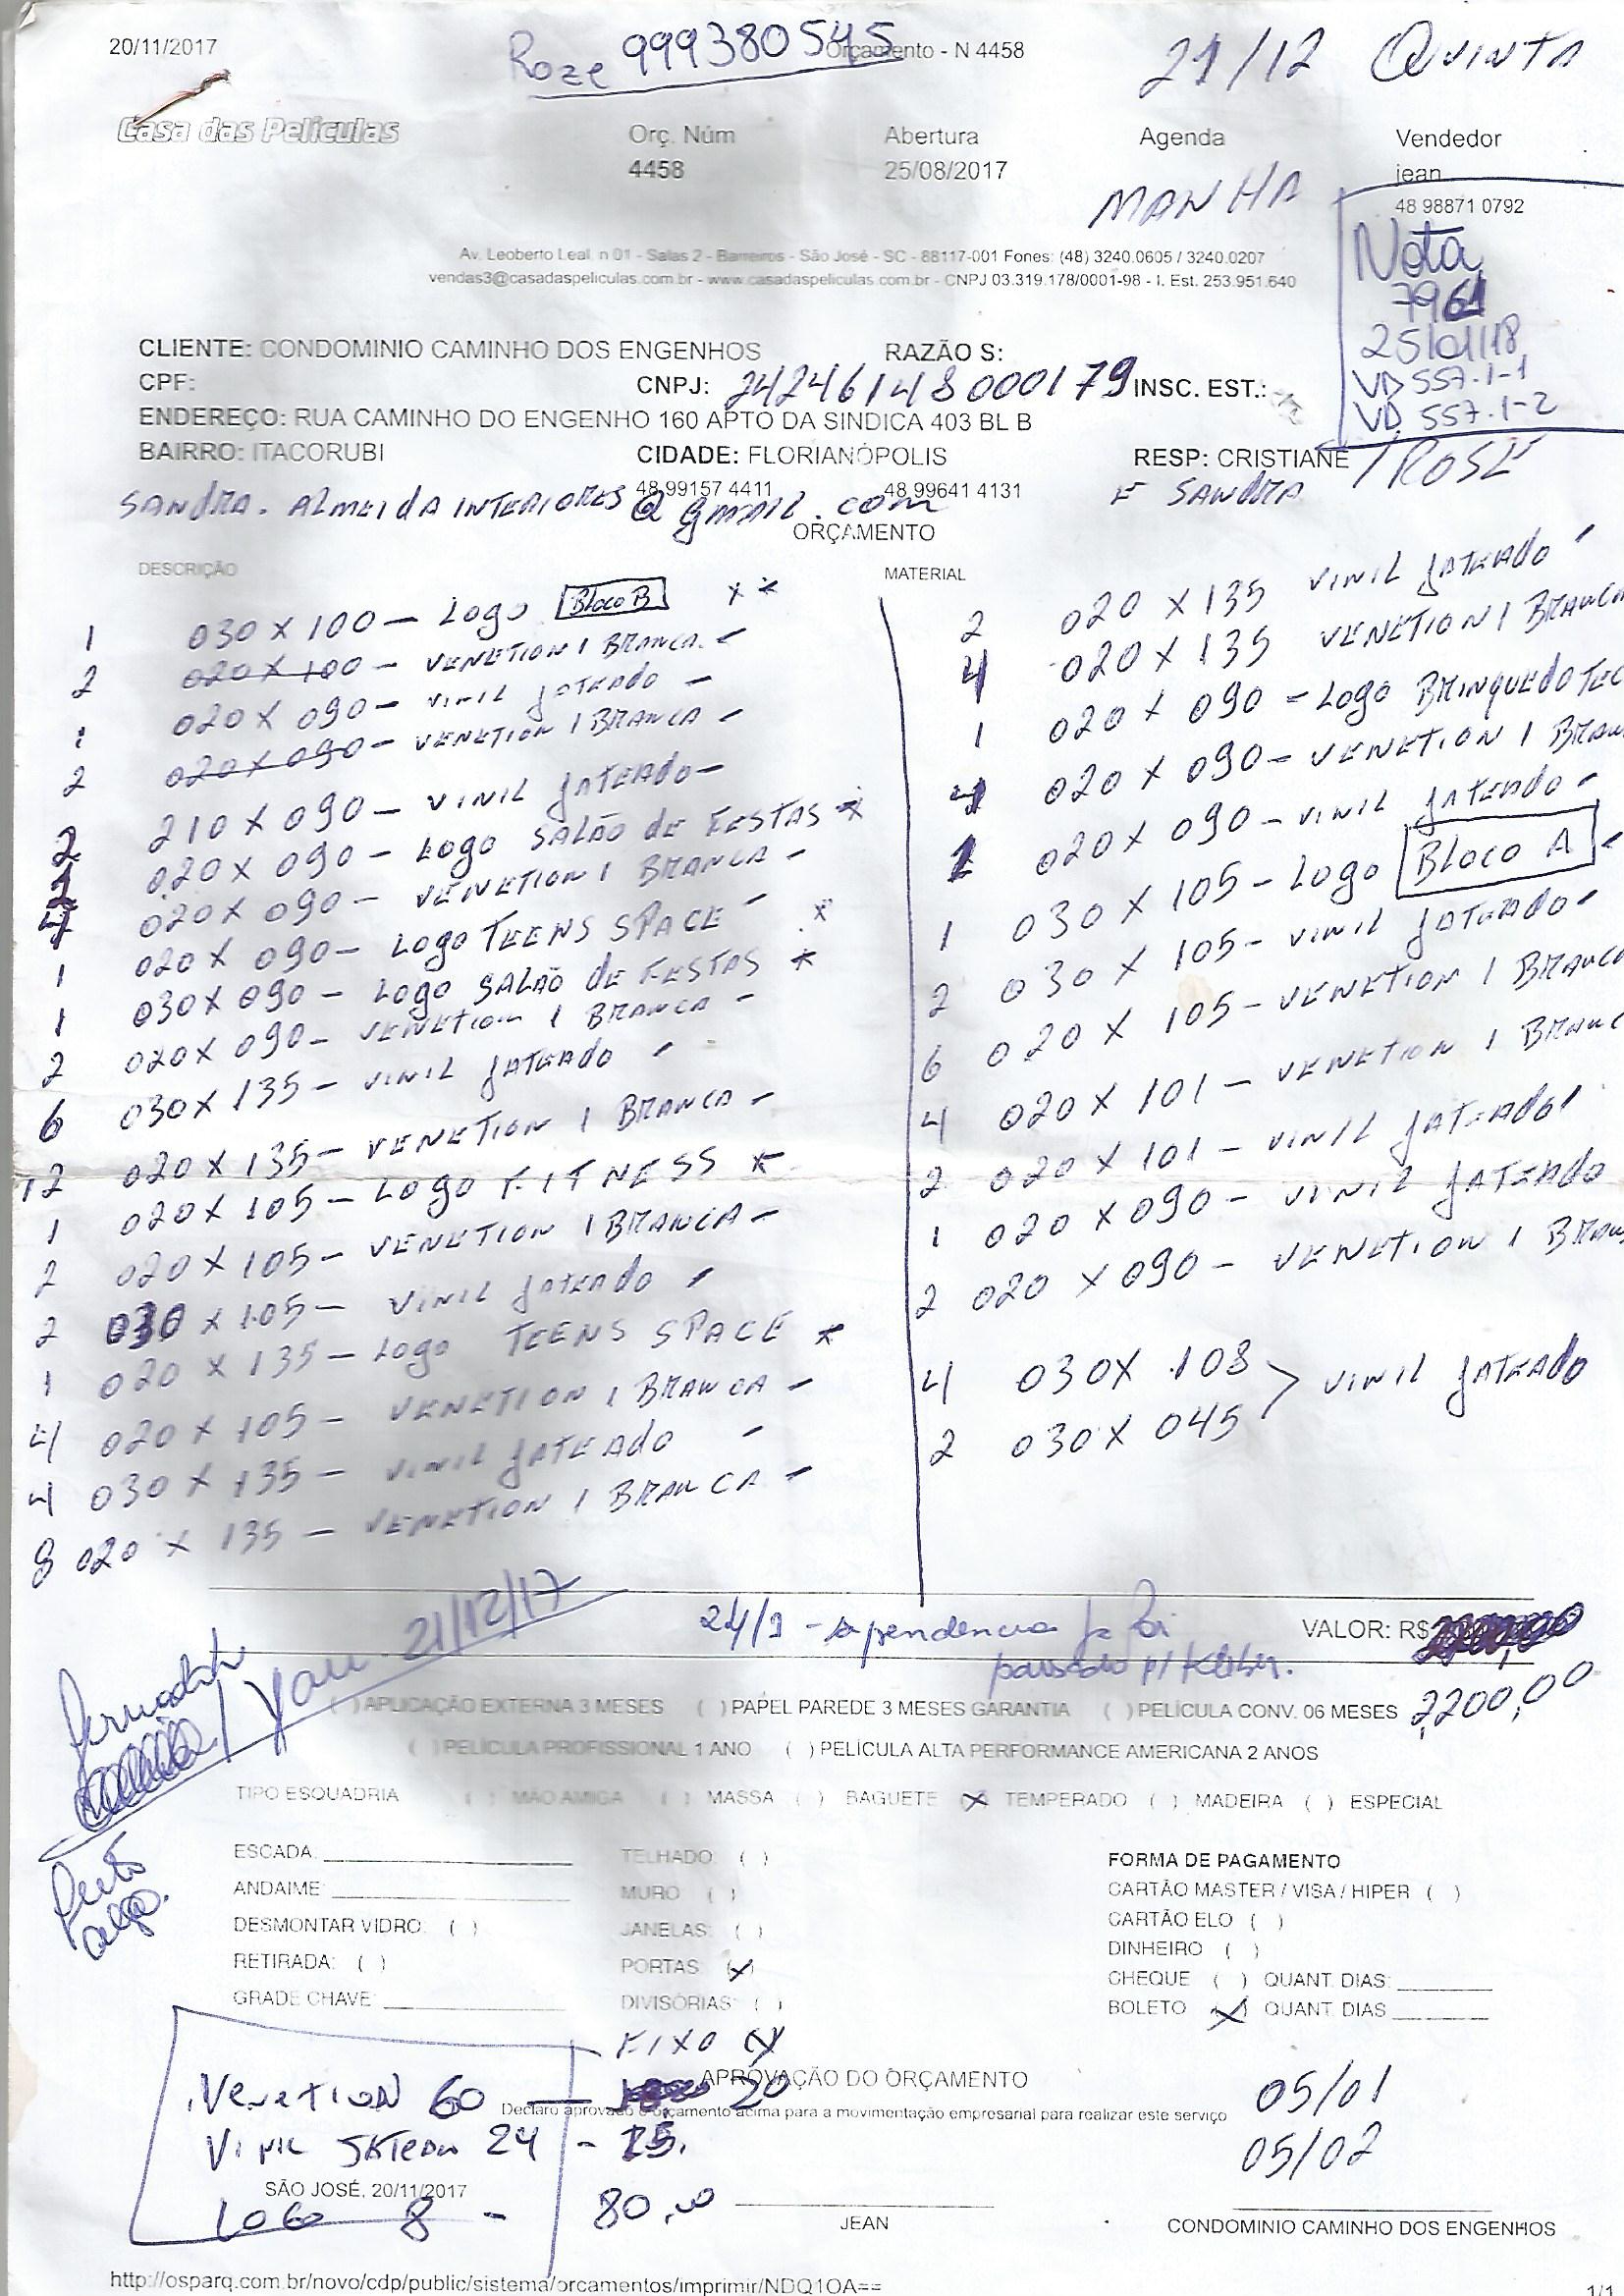 20/11/2017
Roze 999380545
Orçamento - N 4458
21/12 QUINTA
Casa das Películas
Orç. Núm Abertura Agenda Vendedor
4458 25/08/2017 jean
MANHA
48 98871 0792
Nota
7961
25/01/18
VD 557.1-1
VD 557.1-2
Av. Leoberto Leal, n 01 - Salas 2 - Barreiros - São José - SC - 88117-001 Fones: (48) 3240.0605 / 3240.0207
vendas3@casadaspeliculas.com.br - www.casadaspeliculas.com.br - CNPJ 03.319.178/0001-98 - I. Est. 253.951.640
CLIENTE: CONDOMINIO CAMINHO DOS ENGENHOS RAZÃO S:
CPF: CNPJ: 24246148000179 INSC. EST.:
ENDEREÇO: RUA CAMINHO DO ENGENHO 160 APTO DA SINDICA 403 BL B
BAIRRO: ITACORUBI CIDADE: FLORIANÓPOLIS RESP: CRISTIANE / ROSE
48 99157 4411 48 99641 4131 E SANDRA
SANDRA.ALMEIDAINTERIORES@gmail.com
ORÇAMENTO
DESCRIÇÃO MATERIAL
1 030 X 100 - Logo Bloco B **
2 020 X 100 - VENETION 1 BRANCA -
1 020 X 090 - VINIL JATEADO -
2 020 X 090 - VENETION 1 BRANCA -
2 210 X 090 - VINIL JATEADO -
020 X 090 - LOGO SALÃO de FESTAS *
4 020 X 090 - VENETION 1 BRANCA -
1 020 X 090 - LOGO TEENS SPACE - *
1 030 X 090 - LOGO SALÃO de FESTAS *
2 020 X 090 - VENETION 1 BRANCA -
6 030 X 135 - VINIL JATEADO -
12 020 X 135 - VENETION 1 BRANCA -
1 020 X 105 - LOGO FITNESS *
2 020 X 105 - VENETION 1 BRANCA -
2 030 X 105 - VINIL JATEADO -
1 020 X 135 - LOGO TEENS SPACE *
4 020 X 105 - VENETION 1 BRANCA -
4 030 X 135 - VINIL JATEADO -
8 020 X 135 - VENETION 1 BRANCA -
2 020 X 135 VINIL JATEADO -
4 020 X 135 VENETION 1 BRANCA
1 020 X 090 - LOGO BRINQUEDOTEC
4 020 X 090 - VENETION 1 BRAN
1 020 X 090 - VINIL JATEADO -
1 030 X 105 - LOGO Bloco A -
2 030 X 105 - VINIL JATEADO -
6 020 X 105 - VENETION 1 BRANCA
4 020 X 101 - VENETION 1 BRANC
2 020 X 101 - VINIL JATEADO
1 020 X 090 - VINIL JATEADO
2 020 X 090 - VENETION 1 BRAN
4 030 X 108 > VINIL JATEADO
2 030 X 045
21/12/17
24/1 - a pendencia ja foi
passado p/ Kleber.
VALOR: R$
2200,00
( ) APLICAÇÃO EXTERNA 3 MESES ( ) PAPEL PAREDE 3 MESES GARANTIA ( ) PELÍCULA CONV. 06 MESES
( ) PELÍCULA PROFISSIONAL 1 ANO ( ) PELÍCULA ALTA PERFORMANCE AMERICANA 2 ANOS
TIPO ESQUADRIA ( ) MÃO AMIGA ( ) MASSA ( ) BAGUETE (X) TEMPERADO ( ) MADEIRA ( ) ESPECIAL
ESCADA: TELHADO: ( ) FORMA DE PAGAMENTO
ANDAIME: MURO ( ) CARTÃO MASTER / VISA / HIPER ( )
DESMONTAR VIDRO: ( ) JANELAS: ( ) CARTÃO ELO ( )
RETIRADA: ( ) PORTAS: (X) DINHEIRO ( )
GRADE CHAVE: DIVISÓRIAS: ( ) CHEQUE ( ) QUANT. DIAS:
BOLETO (X) QUANT. DIAS
FIXO (X)
APROVAÇÃO DO ORÇAMENTO
Declaro aprovado o orçamento acima para a movimentação empresarial para realizar este serviço
VENETION 60 - 20
24 - 15.
LOGO 8 - 80,00
05/01
05/02
SÃO JOSÉ, 20/11/2017
JEAN
CONDOMINIO CAMINHO DOS ENGENHOS
http://osparq.com.br/novo/cdp/public/sistema/orcamentos/imprimir/NDQ1OA==
1/1